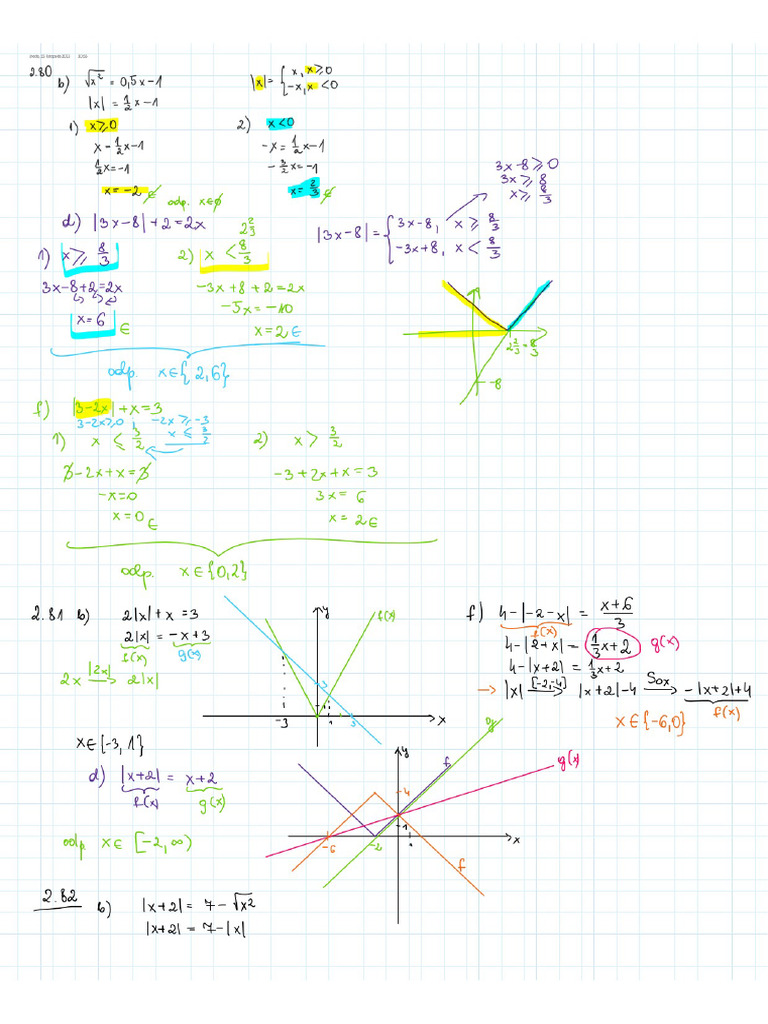 2.80
b) √x² = 0,5x-1
|x| = 1/2 x-1
|x| = { x, x⩾0
-x, x <0
1) x⩾0
x - 1/2 x - 1
1/2 x = -1
x = -2 ∉
2) x<0
-x = 1/2 x-1
-3/2 x = -1
x = 2/3 ∉
odp. x∈∅
d) |3x-8|+2=2x
2 2/3
|3x-8| = { 3x-8, x ⩾ 8/3
-3x+8, x < 8/3
3x-8⩾0
3x⩾8
x⩾ 8/3
1) x⩾ 8/3
3x-8+2=2x
x=6 ∈
2) x < 8/3
-3x+8+2=2x
-5x=-10
x=2 ∈
odp. x∈{2,6}
2 2/3 = 8/3
-8
f) |3-2x|+x=3
3-2x⩾0 -2x⩾-3
x ⩽ 3/2
1) x ⩽ 3/2
3-2x+x=3
-x=0
x=0 ∈
2) x > 3/2
-3+2x+x=3
3x=6
x=2 ∈
odp. x∈{0,2}
2.81 b) 2|x|+x=3
2|x| = -x+3
f(x) g(x)
2x |2x| → 2|x|
x∈{-3,1}
y
f(x)
3
1
-3
1
3
x
d) |x+2| = x+2
f(x) g(x)
odp x∈[-2,∞)
f) 4-|-2-x| = x+6/3
f(x)
4-|2+x| = 1/3 x+2 g(x)
4-|x+2| = 1/3 x+2
→ |x| [-2,-4] → |x+2|-4 Sox → -|x+2|+4
f(x)
x∈{-6,0}
y
g
f
g(x)
4
1
-6
-2
1
x
f
2.82 b) |x+2| = 7-√x²
|x+2| = 7-|x|